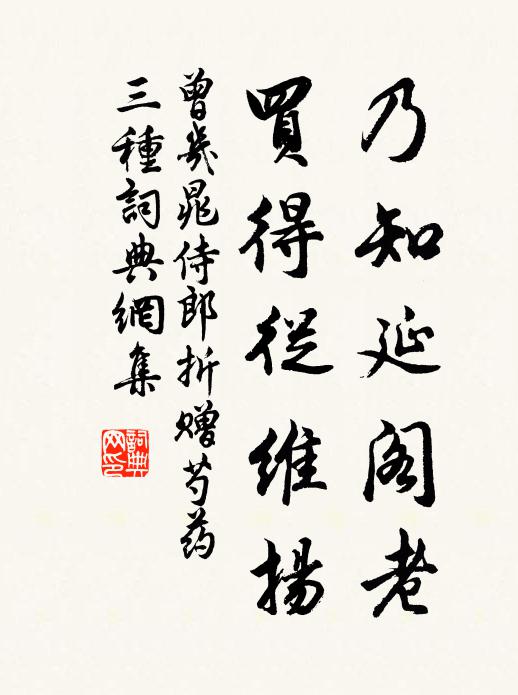 乃知延阁老
買得從維揚
曾幾晁侍郎折赠芍药
三種詞典網集
詞典
网印